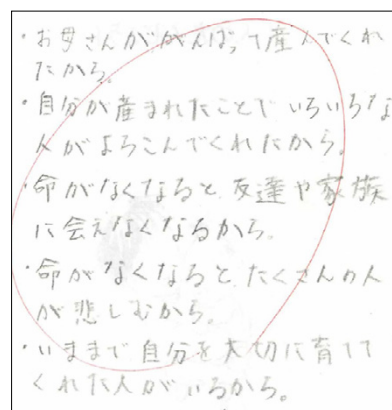 ・お母さんががんばって産んでくれ
たから。
・自分が産まれたことでいろいろな
人がよろこんでくれたから。
・命がなくなると友達や家族
に会えなくなるから。
・命がなくなると、たくさんの人
が悲しむから。
・いままで自分を大切に育てて
くれた人がいるから。